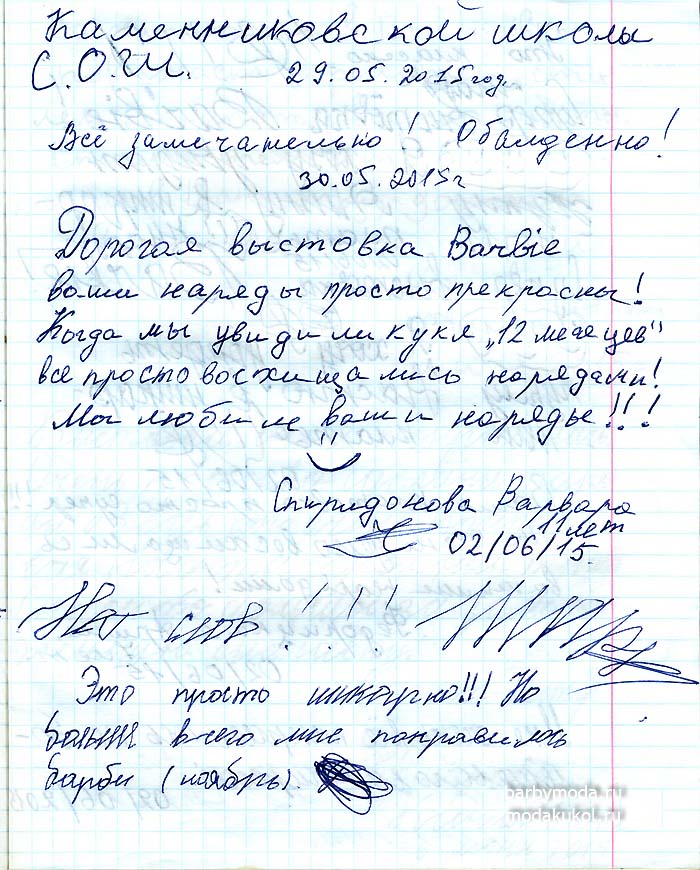 Каменниковской школы
С.О.Ш. 29.05.2015год.
Всё замечательно! Обалденно!
30.05.2015г
Дорогая выстовка Barbie
ваши наряды просто прекрасны!
Когда мы увидили кукл „12 месецев"
все просто восхищались нарядами!
Мы любим ваши наряды!!!
Спиридонова Варвара
11 лет
02/06/15.
Нет слов!!!!
Это просто шикарно!!! Но
больше всего мне понравилась
барби (ноябрь).
barbymoda.ru
modakukol.ru